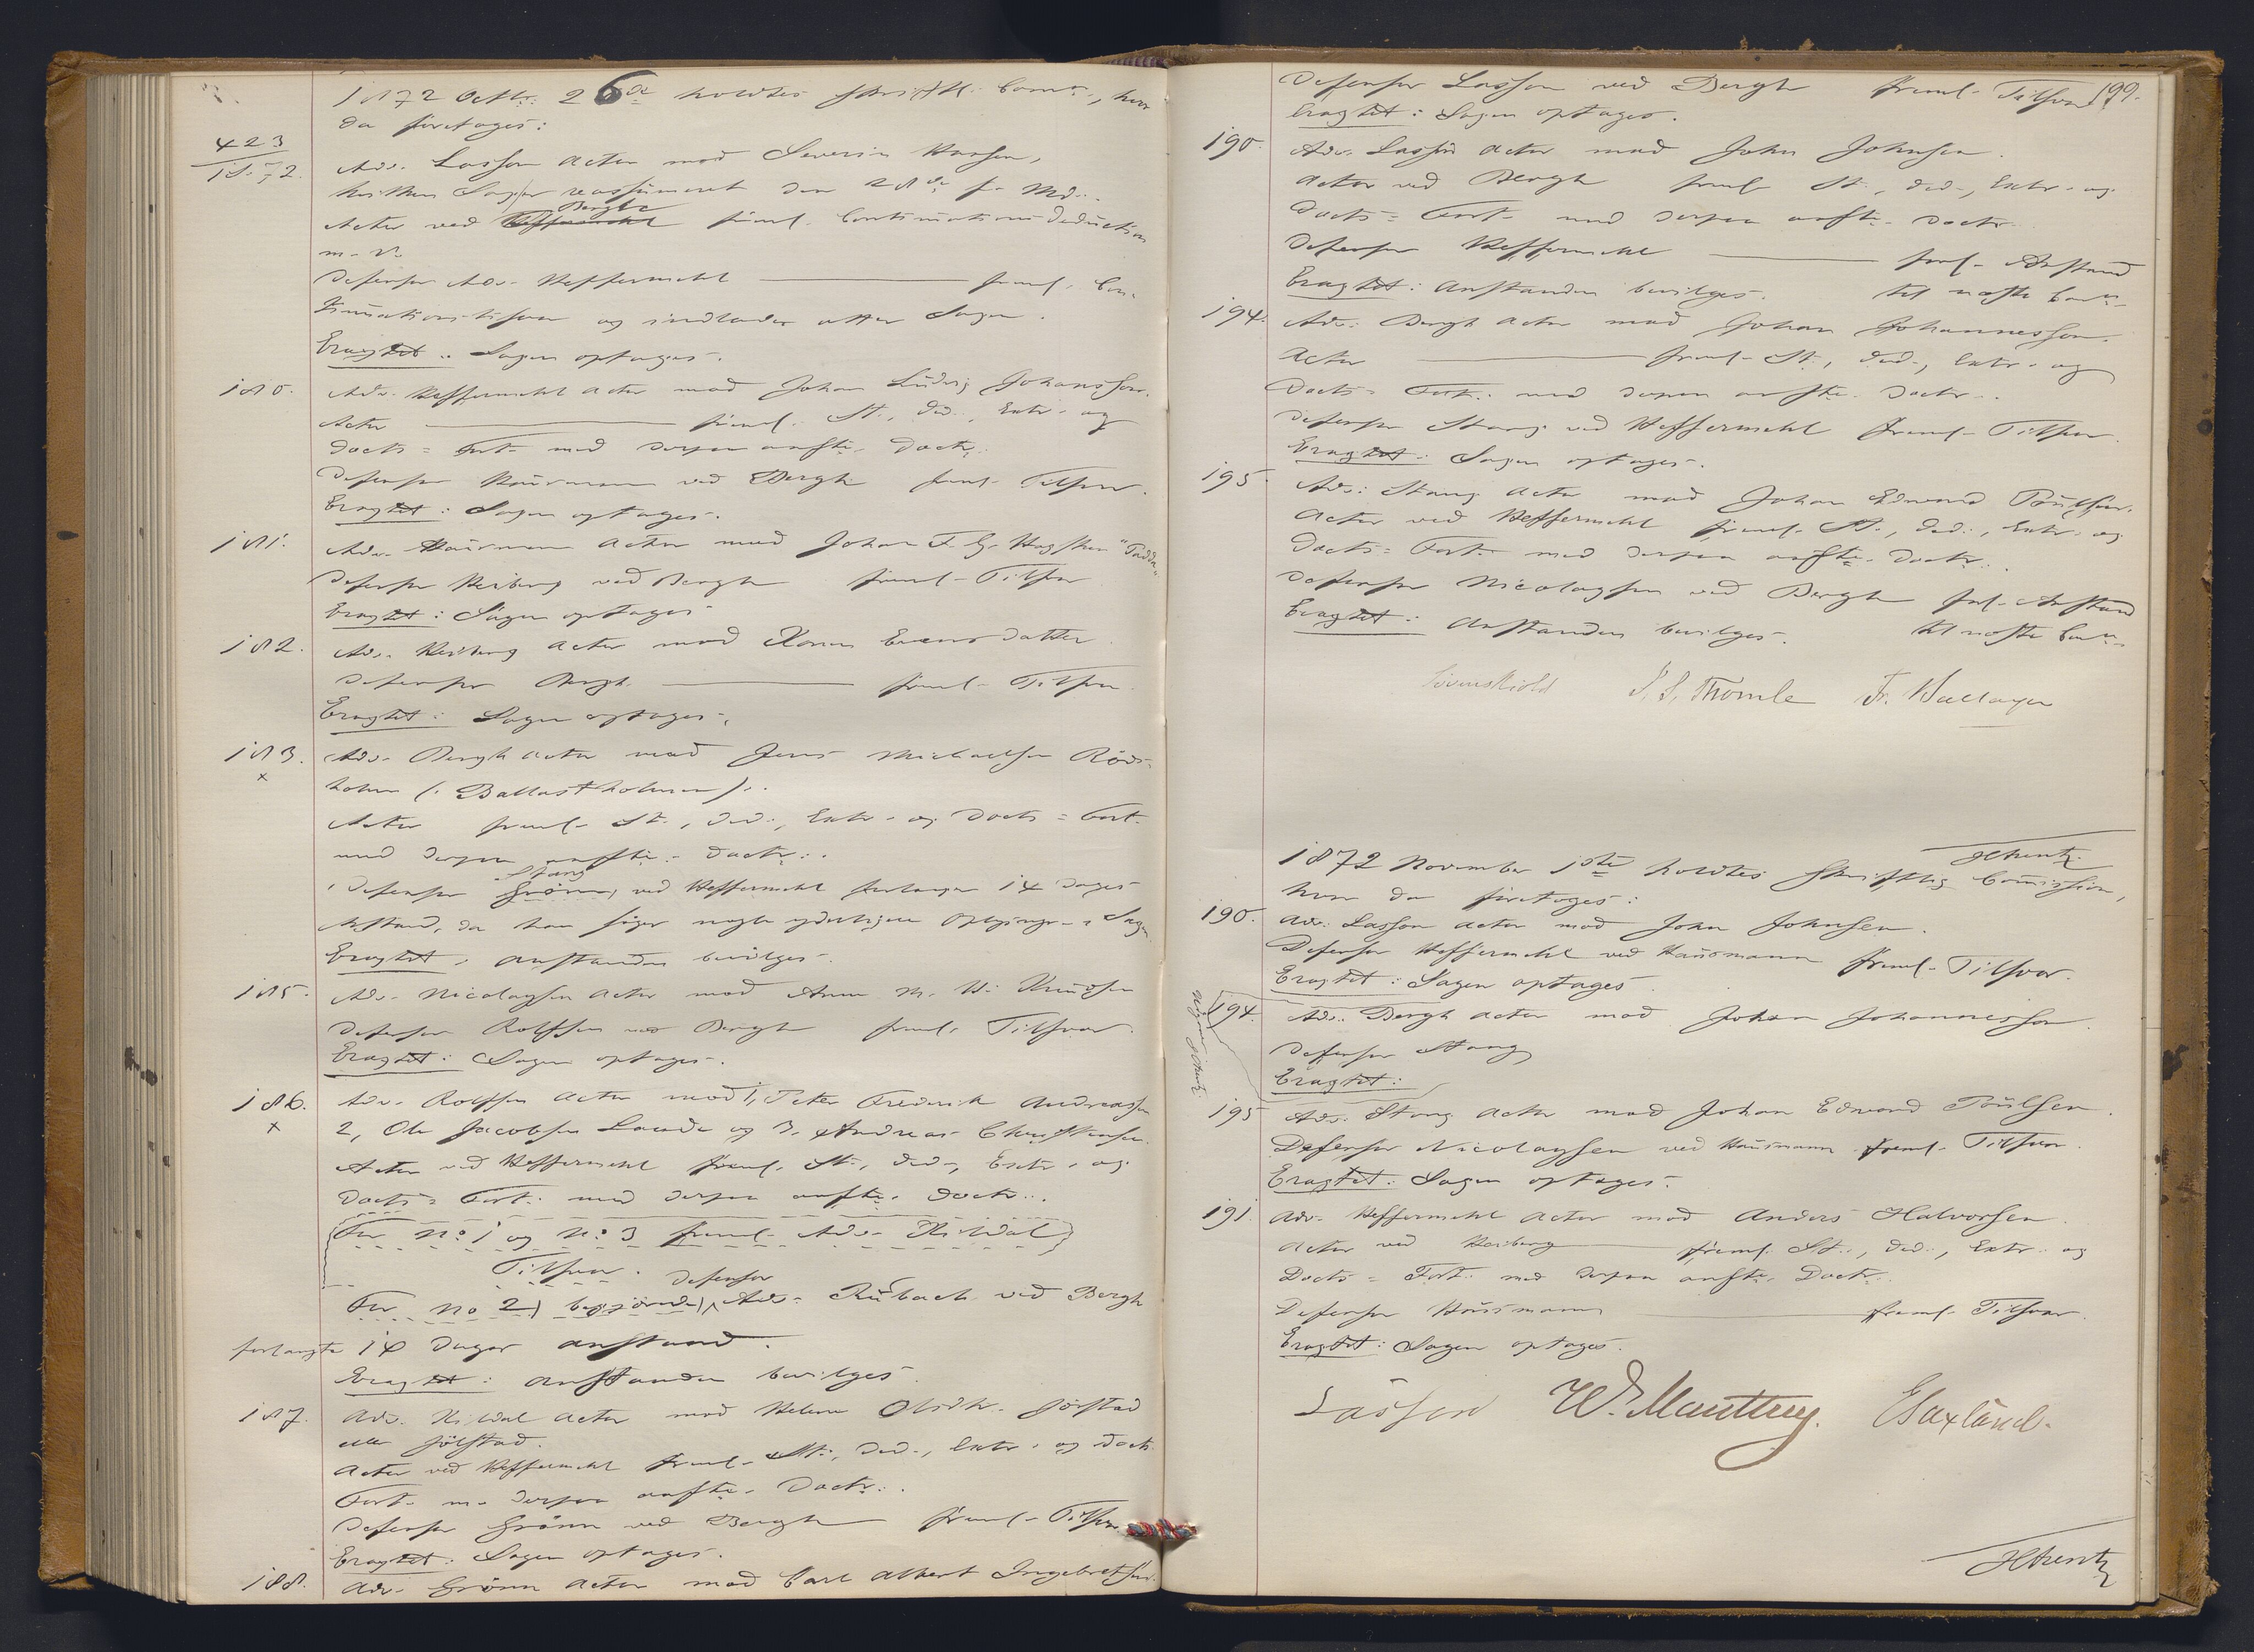 1872 Octbr: 26de holdtes skriftl: Comn:, hvor
da foretoges:
423
1S. 72.
Adv. Lasson Actor mod Severin Hansen,
hvilken Sag er reassumeret den 28de f. Md.
Berghe
Actor ved freml. Continuations Deduction
m. V.
Defensor Adv. Heffermehl freml. Con-
tinuationstilsvar og indlader atter Sagen.
Eragtet: Sagen optages.
180. Adv. Heffermehl Actor mod Johan Ludvig Johansson.
Actor freml. St., Ded., Extr. og
Docts = Fort. med derpaa anfte. Doctr.
Defensor Hausmann ved Bergh freml. Tilsvar.
Eragtet: Sagen optages.
181. Adv. Hausmann Actor mod Johan F. G.
Defensor Heiberg ved Bergh freml. Tilsvar
Eragtet: Sagen optages.
182. Adv. Heiberg Actor mod Karen Evensdatter.
Defensor Bergh freml. Tilsvar.
Eragtet: Sagen optages.
183. Adv. Bergh Actor mod Jens Michaelsen Röds-
x
holm (: Ballastholmen ):
Actor freml. St., Ded., Extr. og Docts = Fort.
med derpaa anfte. Doctr.
Stang
Defensor Grönn, ved Heffermehl forlanger 14 Dages
Anstand, da han söger nogle yderligere Oplysninger i Sagen.
Eragtet: Anstanden bevilges.
185. Adv. Nicolaysen Actor mod Anne M. H. Knudsen
Defensor Rolfsen ved Bergh freml. Tilsvar.
Eragtet: Sagen optages.
186. Adv. Rolfsen Actor mod 1, Peter Frederik Andreassen
x
2, Ole Jacobsen Laade og 3, Andreas Christensen.
Actor ved Heffermehl freml. St., Ded., Extr. og
Docts = Fort. med derpaa anfte. Doctr.
For No: 1 og No: 3 freml. Adv. Hildal
Tilsvar.
Defensor
For No 2) begjærede Adv. Rubach ved Bergh
forlangte 14 Dages Anstand.
Eragtet: Anstanden bevilges.
187. Adv. Hildal Actor mod Helene Olsdtr. Jörstad
eller Jölstad.
Actor ved Heffermehl freml. St., Ded., Extr. og Docts
Fort. m. derpaa anfte. Doctr.
Defensor Grönn ved Bergh freml. Tilsvar
Eragtet: Sagen optages.
188. Adv. Grönn Actor mod Carl Albert Ingebretsen.
199.
Defensor Lasson ved Bergh freml. Tilsvar
Eragtet: Sagen optages.
190. Adv. Lasson Actor mod John Johnsen.
Actor ved Bergh freml. St., Ded., Extr. og
Docts = Fort. med derpaa anfte. Doctr.
Defensor Heffermehl forl. Anstand
Eragtet: Anstanden bevilges. til næste Comn.
194. Adv. Bergh Actor mod Johan Johannesson.
Actor freml. St., Ded., Extr. og
Docts = Fort. med derpaa anfte. Doctr.
Defensor Stang ved Heffermehl freml. Tilsvar.
Eragtet: Sagen optages.
195. Adv: Stang Actor mod Johan Edvard Poulsen.
Actor ved Heffermehl freml. St., Ded., Extr. og
Docts = Fort. med derpaa anfte. Doctr.
Defensor Nicolaysen ved Bergh forl. Anstand
Eragtet: Anstanden bevilges. til næste Comn.
Lövenskiold J. S. Thomle Fr. Hallager
1872 November 1ste holdtes skriftlig Commission,
hvor da foretoges:
190. Adv. Lasson Actor mod John Johnsen.
Defensor Heffermehl ved Hausmann freml. Tilsvar.
Eragtet: Sagen optages.
194. Adv. Bergh Actor mod Johan Johannesson
Defensor Stang
Eragtet:
195 Adv. Stang Actor mod Johan Edvard Poulsen.
Defensor Nicolaysen ved Hausmann freml. Tilsvar.
Eragtet: Sagen optages.
191. Adv. Heffermehl Actor mod Anders Halvorsen.
Actor ved Heiberg freml. St., Ded., Extr. og
Docts = Fort. med derpaa anfte. Doctr.
Defensor Hausmann freml. Tilsvar.
Eragtet: Sagen optages.
Lasson